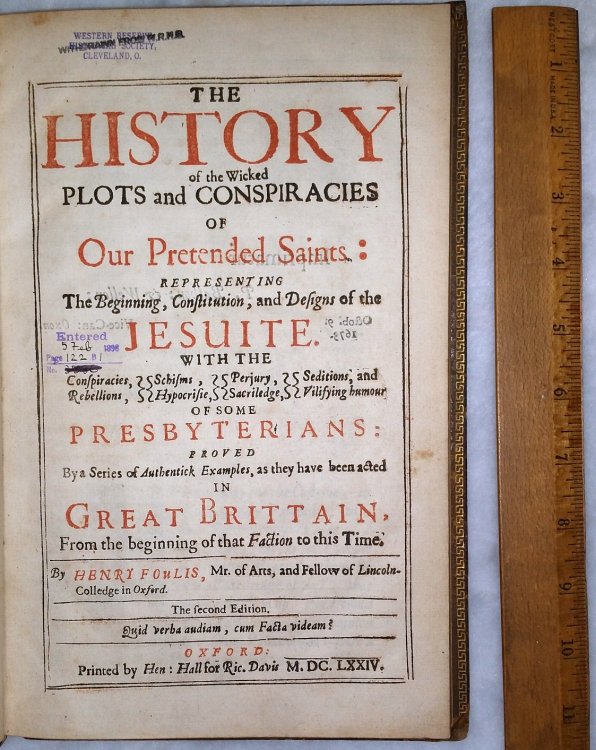 WESTERN RESERVE
HISTORICAL SOCIETY,
CLEVELAND, O.
WITHDRAWN FROM W.R.H.S.
THE
HISTORY
of the Wicked
PLOTS and CONSPIRACIES
OF
Our Pretended Saints:
REPRESENTING
The Beginning, Conſtitution, and Deſigns of the
JESUITE.
WITH THE
Conſpiracies, Schiſms, Perjury, Seditions, and
Rebellions, Hypocriſie, Sacriledge, Vilifying humour
OF SOME
PRESBYTERIANS:
PROVED
By a Series of Authentick Examples, as they have been acted
IN
GREAT BRITTAIN,
From the beginning of that Faction to this Time.
By HENRY FOULIS, Mr. of Arts, and Fellow of Lincoln-
Colledge in Oxford.
The ſecond Edition.
Quid verba audiam, cum Facta videam?
OXFORD:
Printed by Hen: Hall for Ric. Davis M. DC. LXXIV.
Entered
5 Feb 1896
Page 122 B1
No.
1
2
3
4
5
6
7
8
9
10
11
MADE IN U.S.A.